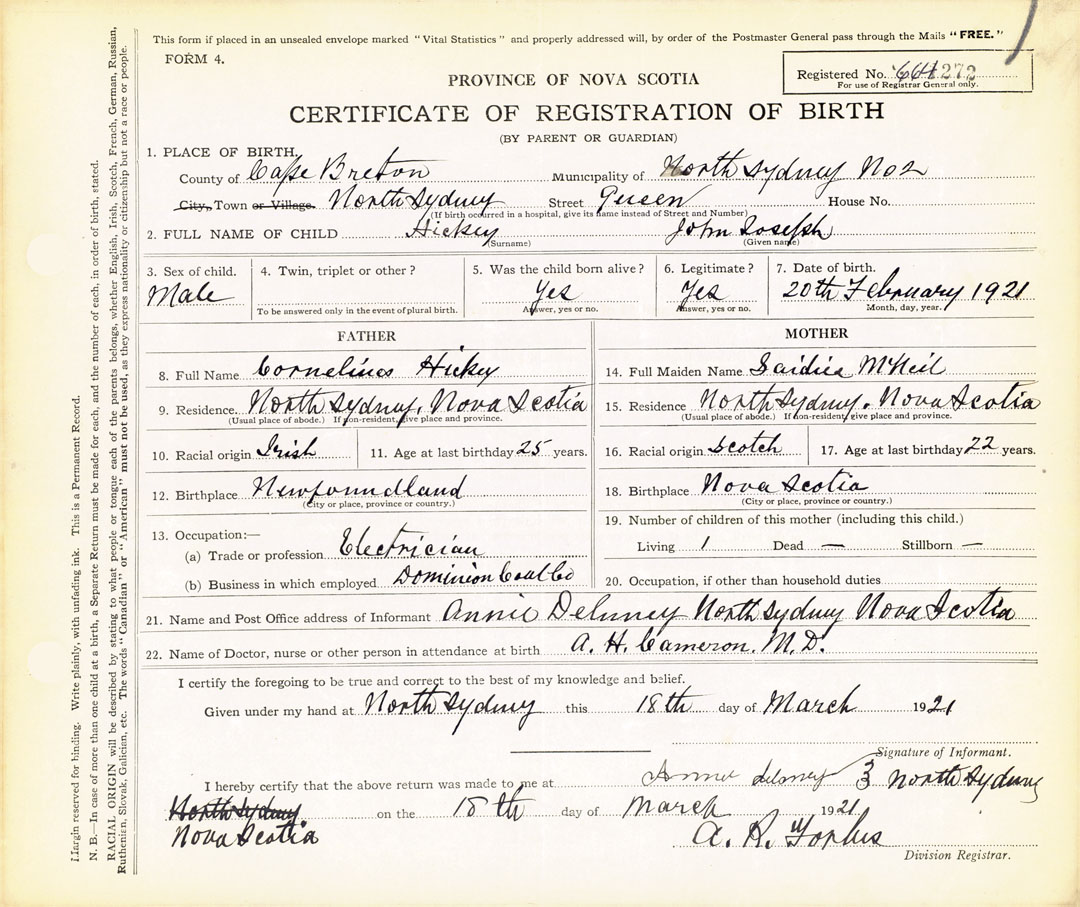 This form if placed in an unsealed envelope marked "Vital Statistics" and properly addressed will, by order of the Postmaster General pass through the Mails "FREE."
FORM 4.
Registered No. 272
For use of Registrar General only.
PROVINCE OF NOVA SCOTIA
CERTIFICATE OF REGISTRATION OF BIRTH
(BY PARENT OR GUARDIAN)
1. PLACE OF BIRTH.
County of Cape Breton Municipality of North Sydney No 2
City, Town or Village. North Sydney Street Queen House No.
(If birth occurred in a hospital, give its name instead of Street and Number)
2. FULL NAME OF CHILD Hickey John Joseph
(Surname) (Given name)
3. Sex of child. 4. Twin, triplet or other? 5. Was the child born alive? 6. Legitimate? 7. Date of birth.
Male Yes Yes 20th February 1921
To be answered only in the event of plural birth. Answer, yes or no. Answer, yes or no. Month, day, year.
FATHER
8. Full Name Cornelious Hickey
9. Residence. North Sydney. Nova Scotia
(Usual place of abode.) If non-resident, give place and province.
10. Racial origin Irish 11. Age at last birthday 25 years.
12. Birthplace Newfoundland
(City or place, province or country.)
13. Occupation:—
(a) Trade or profession Electrician
(b) Business in which employed Dominion Coal Co
MOTHER
14. Full Maiden Name Saidie McNeil
15. Residence North Sydney. Nova Scotia
(Usual place of abode.) If non-resident, give place and province.
16. Racial origin Scotch 17. Age at last birthday 22 years.
18. Birthplace Nova Scotia
(City or place, province or country.)
19. Number of children of this mother (including this child.)
Living 1 Dead — Stillborn —
20. Occupation, if other than household duties
21. Name and Post Office address of Informant Annie Delaney North Sydney Nova Scotia
22. Name of Doctor, nurse or other person in attendance at birth A. H. Cameron. M. D.
I certify the foregoing to be true and correct to the best of my knowledge and belief.
Given under my hand at North Sydney this 18th day of March 1921
Signature of Informant.
I hereby certify that the above return was made to me at Annie Delaney North Sydney
North Sydney on the 18th day of March 1921
Nova Scotia A. R. Forbes
Division Registrar.
Margin reserved for binding. Write plainly, with unfading ink. This is a Permanent Record.
N. B.—In case of more than one child at a birth, a Separate Return must be made for each, and the number of each, in order of birth, stated.
RACIAL ORIGIN will be described by stating to what people or tongue each of the parents belongs, whether English, Irish, Scotch, French, German, Russian,
Ruthenian, Slovak, Galician, etc. The words "Canadian" or "American" must not be used, as they express nationality or citizenship but not a race or people.